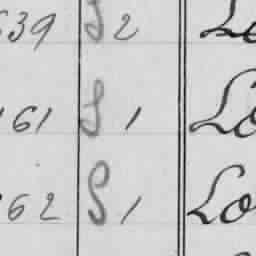 639 S 2 Lo
161 S 1 Lo
162 S 1 Lo